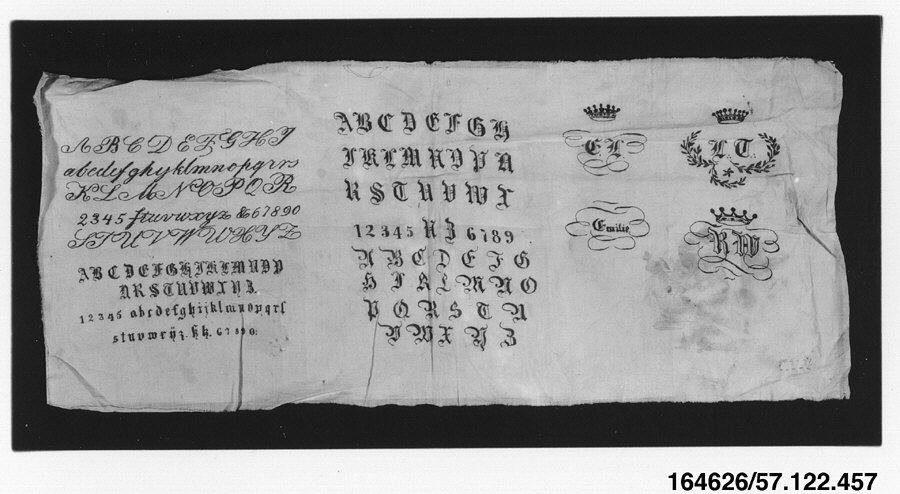 A B C D E F G H I J
abcdefghyklmnopqrrs
K L M N O P Q R
2345 ftuvwxyz & 67890
S T U V W U X Y Z
A B C D E F G H I K L M N O P
Q R S T U V W X Y Z.
12345 abcdefghijklmnopqrs
stuvwxyz. 67890.
A B C D E F G H
I K L M N O P Q
R S T U V W X
12345 Y Z 6789
A B C D E F G
H I K L M N O
P Q R S T U
V W X Y Z
E L
L. T.
Emilie
R W
164626/57.122.457